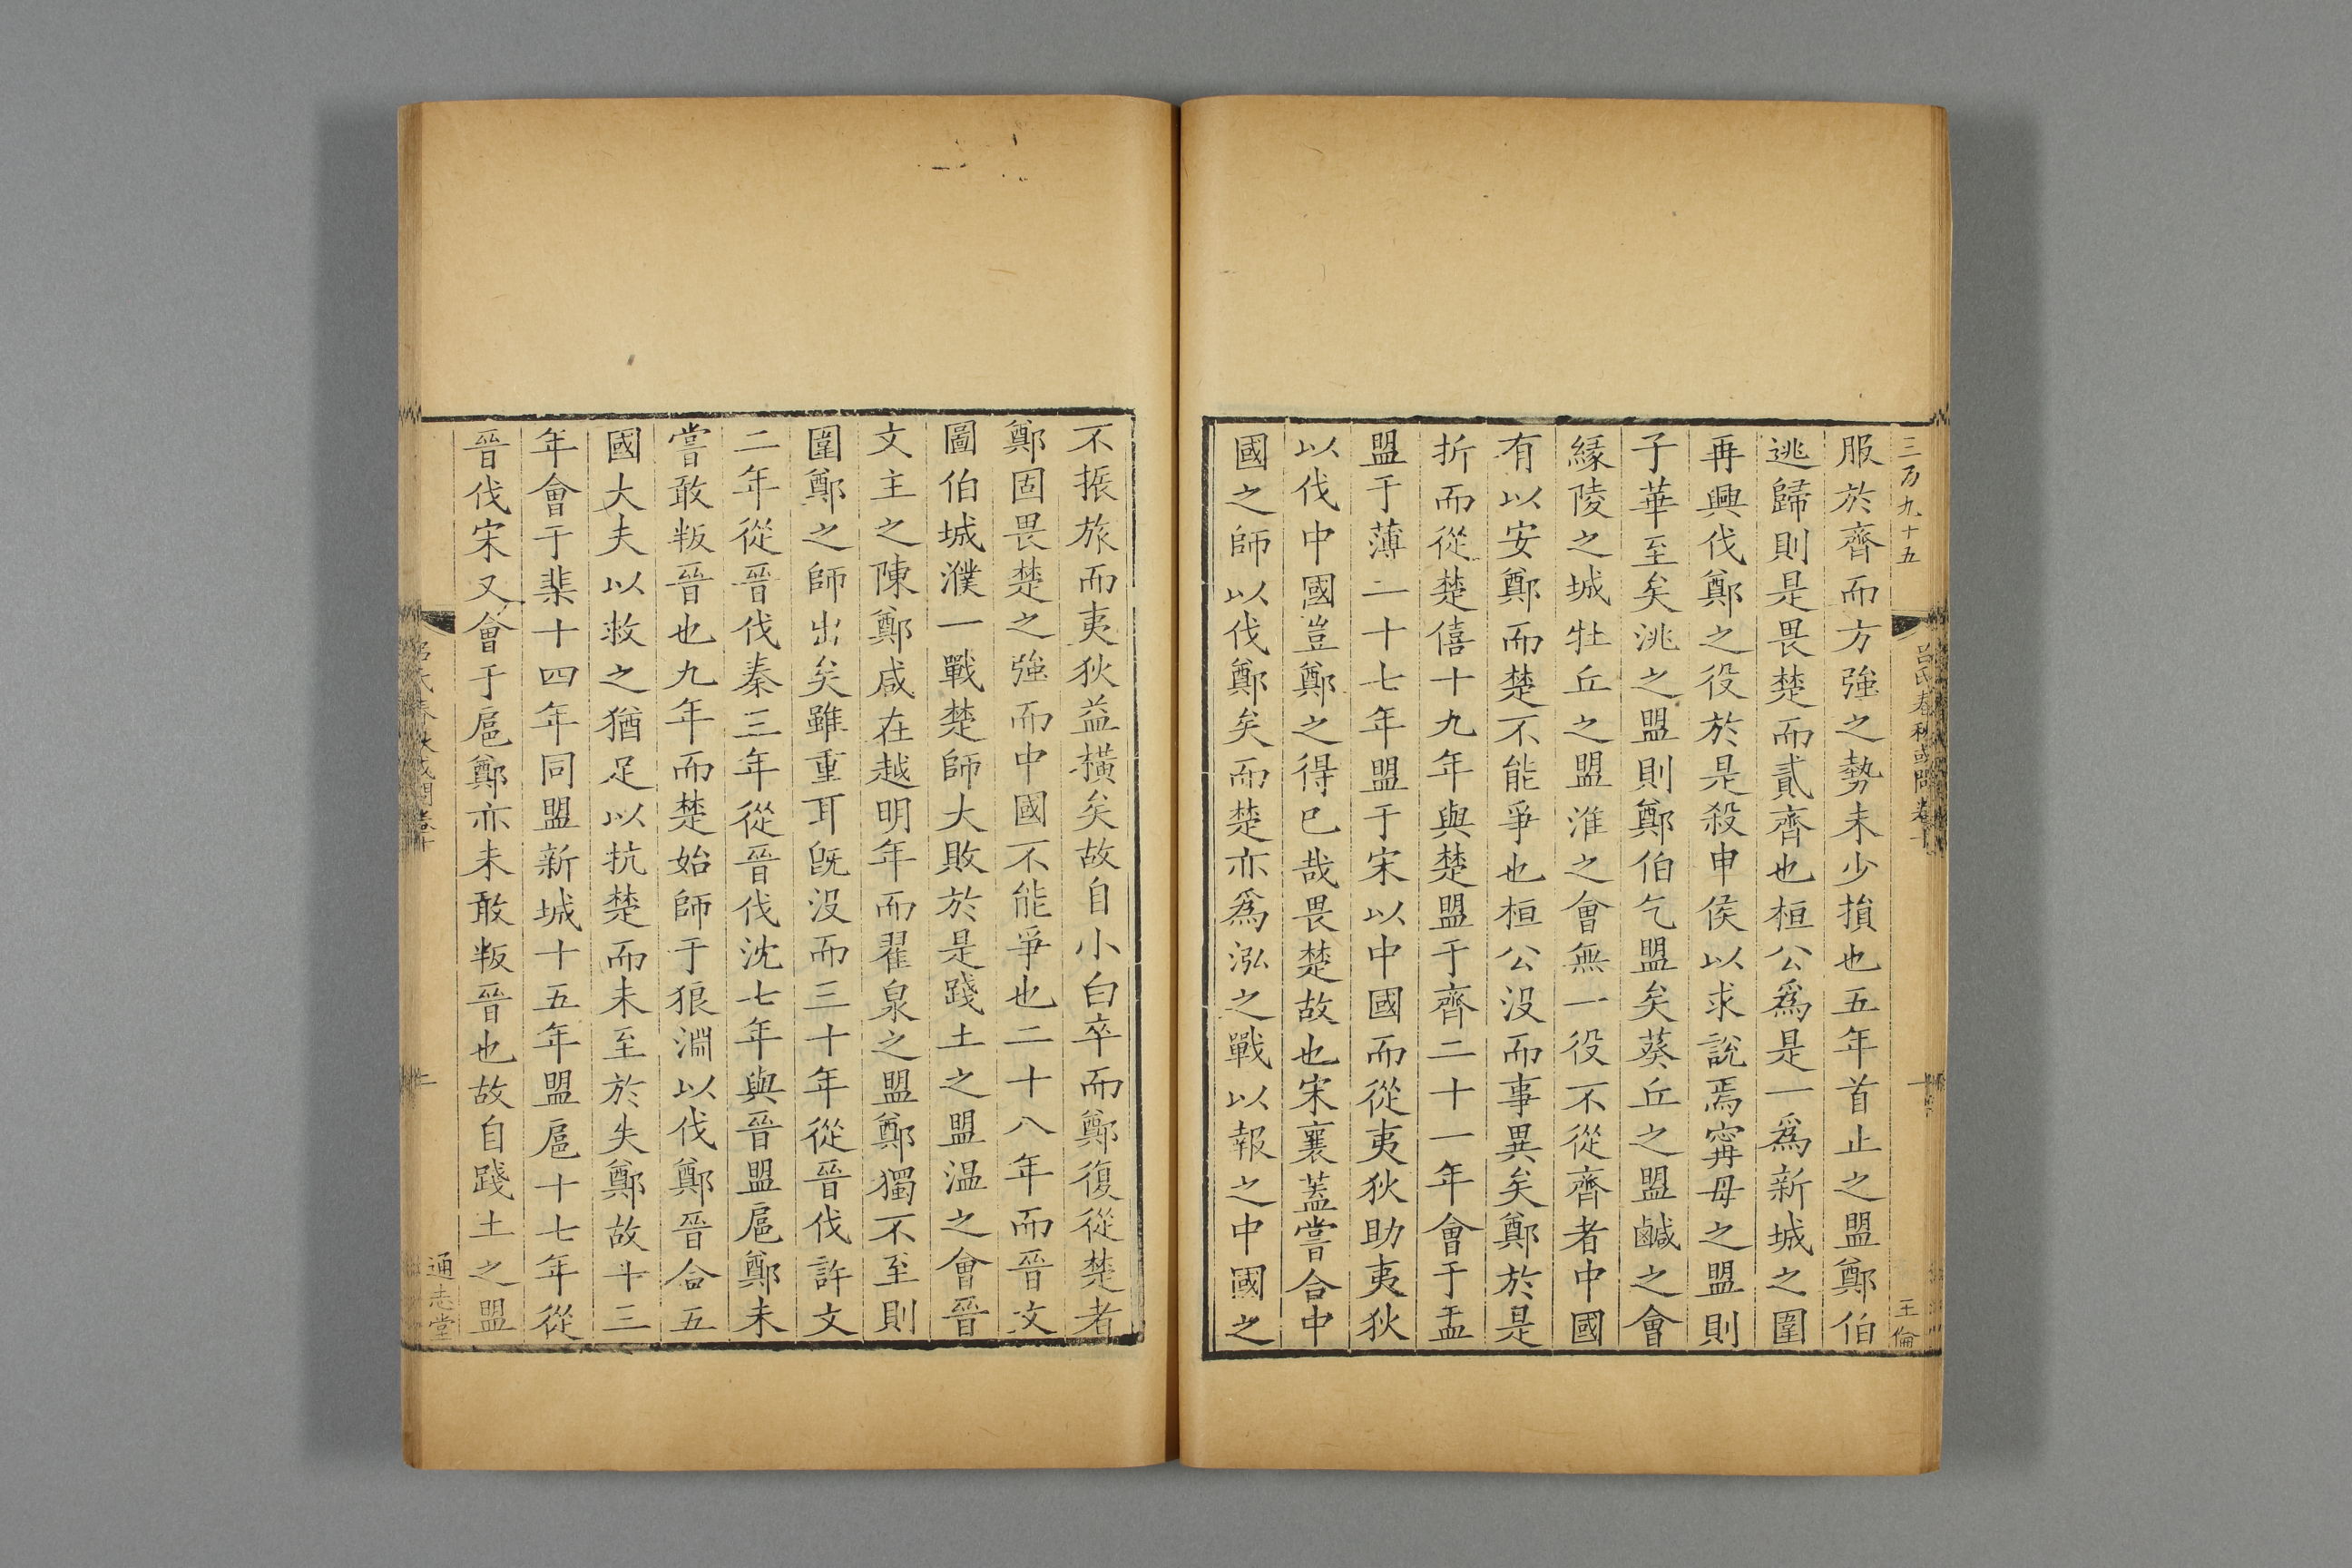 三百九十五
呂氏春秋或問卷十
王倫
服於齊而方強之勢未少損也五年首止之盟鄭伯
逃歸則是畏楚而貳齊也桓公爲是一爲新城之圍
再興伐鄭之役於是殺申侯以求說焉甯毋之盟則
子華至矣洮之盟則鄭伯乞盟矣葵丘之盟鹹之會
緣陵之城牡丘之盟淮之會無一役不從齊者中國
有以安鄭而楚不能爭也桓公沒而事異矣鄭於是
折而從楚僖十九年與楚盟于齊二十一年會于盂
盟于薄二十七年盟于宋以中國而從夷狄助夷狄
以伐中國豈鄭之得已哉畏楚故也宋襄蓋嘗合中
國之師以伐鄭矣而楚亦爲泓之戰以報之中國之
不振旅而夷狄益橫矣故自小白卒而鄭復從楚者
鄭固畏楚之強而中國不能爭也二十八年而晉文
圖伯城濮一戰楚師大敗於是踐土之盟温之會晉
文主之陳鄭咸在越明年而翟泉之盟鄭獨不至則
圍鄭之師出矣雖重耳旣沒而三十年從晉伐許文
二年從晉伐秦三年從晉伐沈七年與晉盟扈鄭未
嘗敢叛晉也九年而楚始師于狼淵以伐鄭晉合五
國大夫以救之猶足以抗楚而未至於失鄭故十三
年會于棐十四年同盟新城十五年盟扈十七年從
晉伐宋又會于扈鄭亦未敢叛晉也故自踐土之盟
通志堂